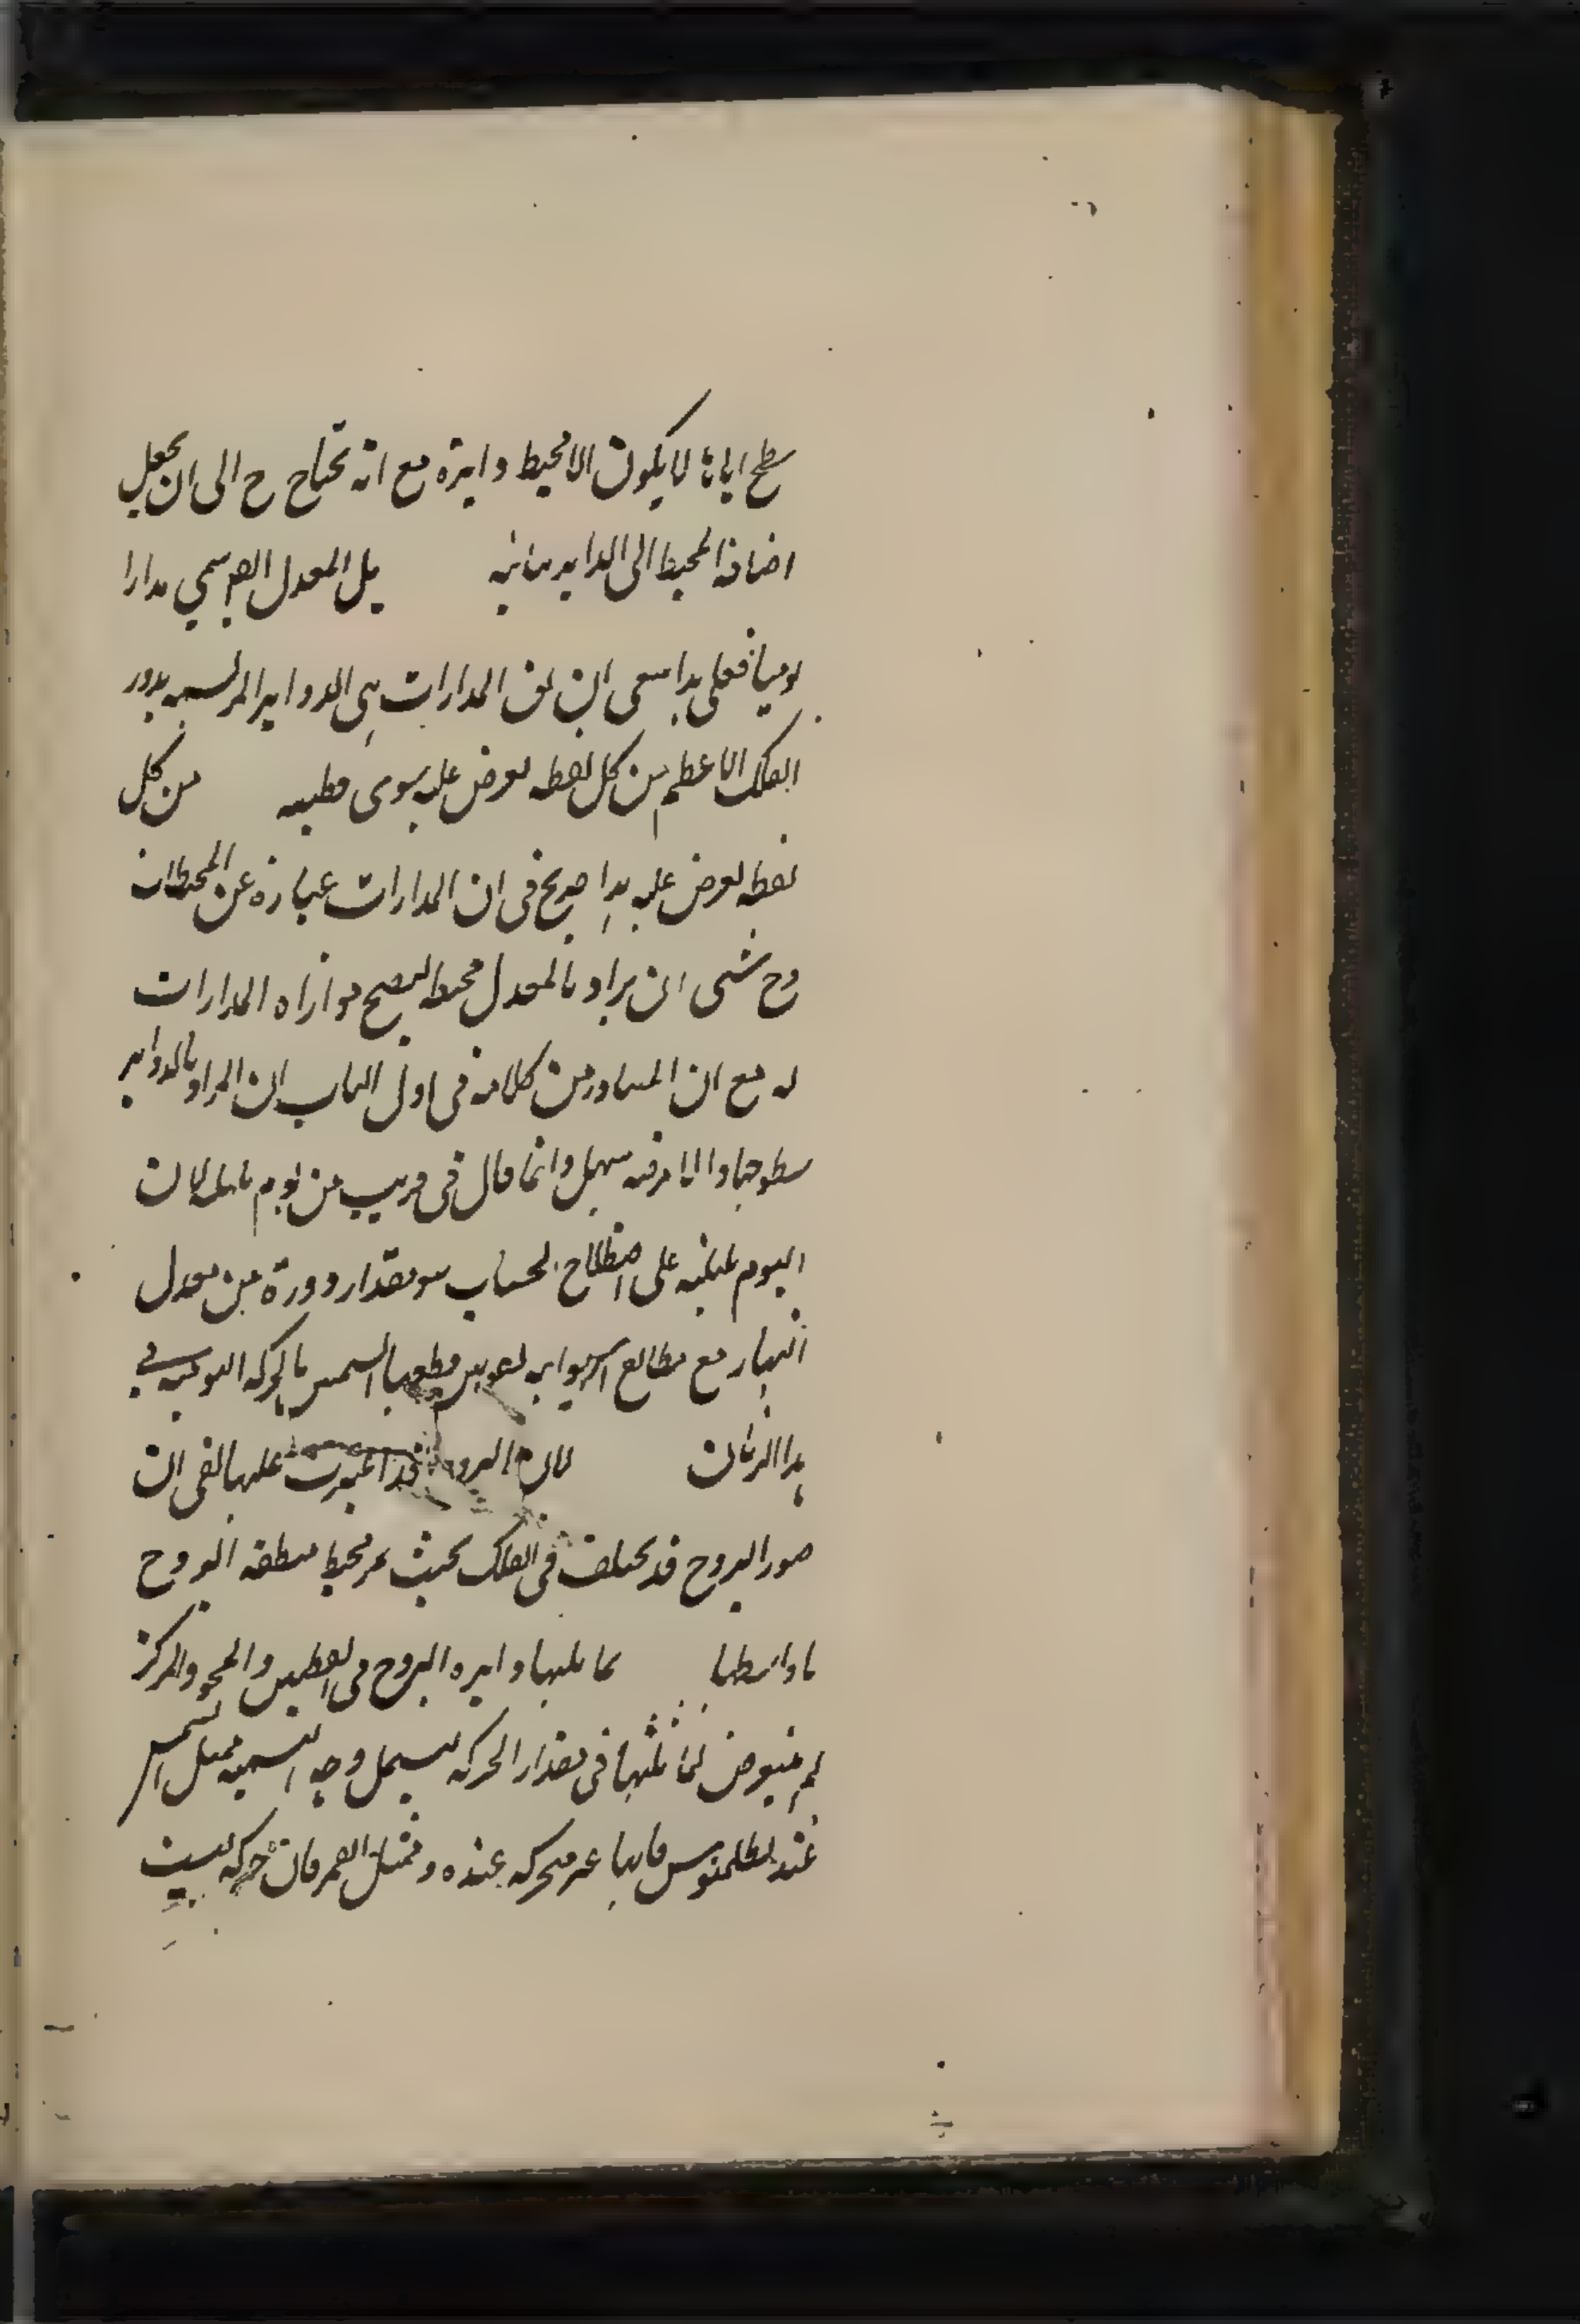 سطح اياها لا يكون الا محيط دايرة مع انه يحتاج ح الى ان يجعل
اضافة المحيط الى الدايره بيانيه بل المعدل ايضا يسمى مدارا
يوميا فعلى هذا ينبغى ان المدارات هى الدواير المرتسمه بدور
الفلك الاعظم من كل نقطه تفرض عليه سوى قطبيه من كل
نقطه تفرض عليه هذا صريح فى ان المدارات عبارة عن المحيطات
وح ينبغى ان يراد بالمعدل محيطه ليصح موازاه المدارات
له مع ان المتبادر من كلامه فى اول الباب ان المراد بالدواير
سطوحها والامر فيه سهل وانما قال فى قريب من يوم بليله لان
اليوم بليلته على اصطلاح الحساب هو مقدار دورة من معدل
النهار مع مطالع استوايه لقوس قطعها الشمس بالحركه التقويميه فى
هذا الزمان لان البروج قد اعتبرت عليها لفى ان
صور البروج قد تختلف فى الفلك بحيث يمر محيط منطقه البروج
باواسطها مما يليها دايره البروج فى القطبين والمحور والمركز
لم يتعرض لمماثلتها فى مقدار الحركه ليشمل وجه التسميه ممثل الشمس
عند بطلميوس فانها غير متحركه عنده وممثل القمر فان حركه ليست